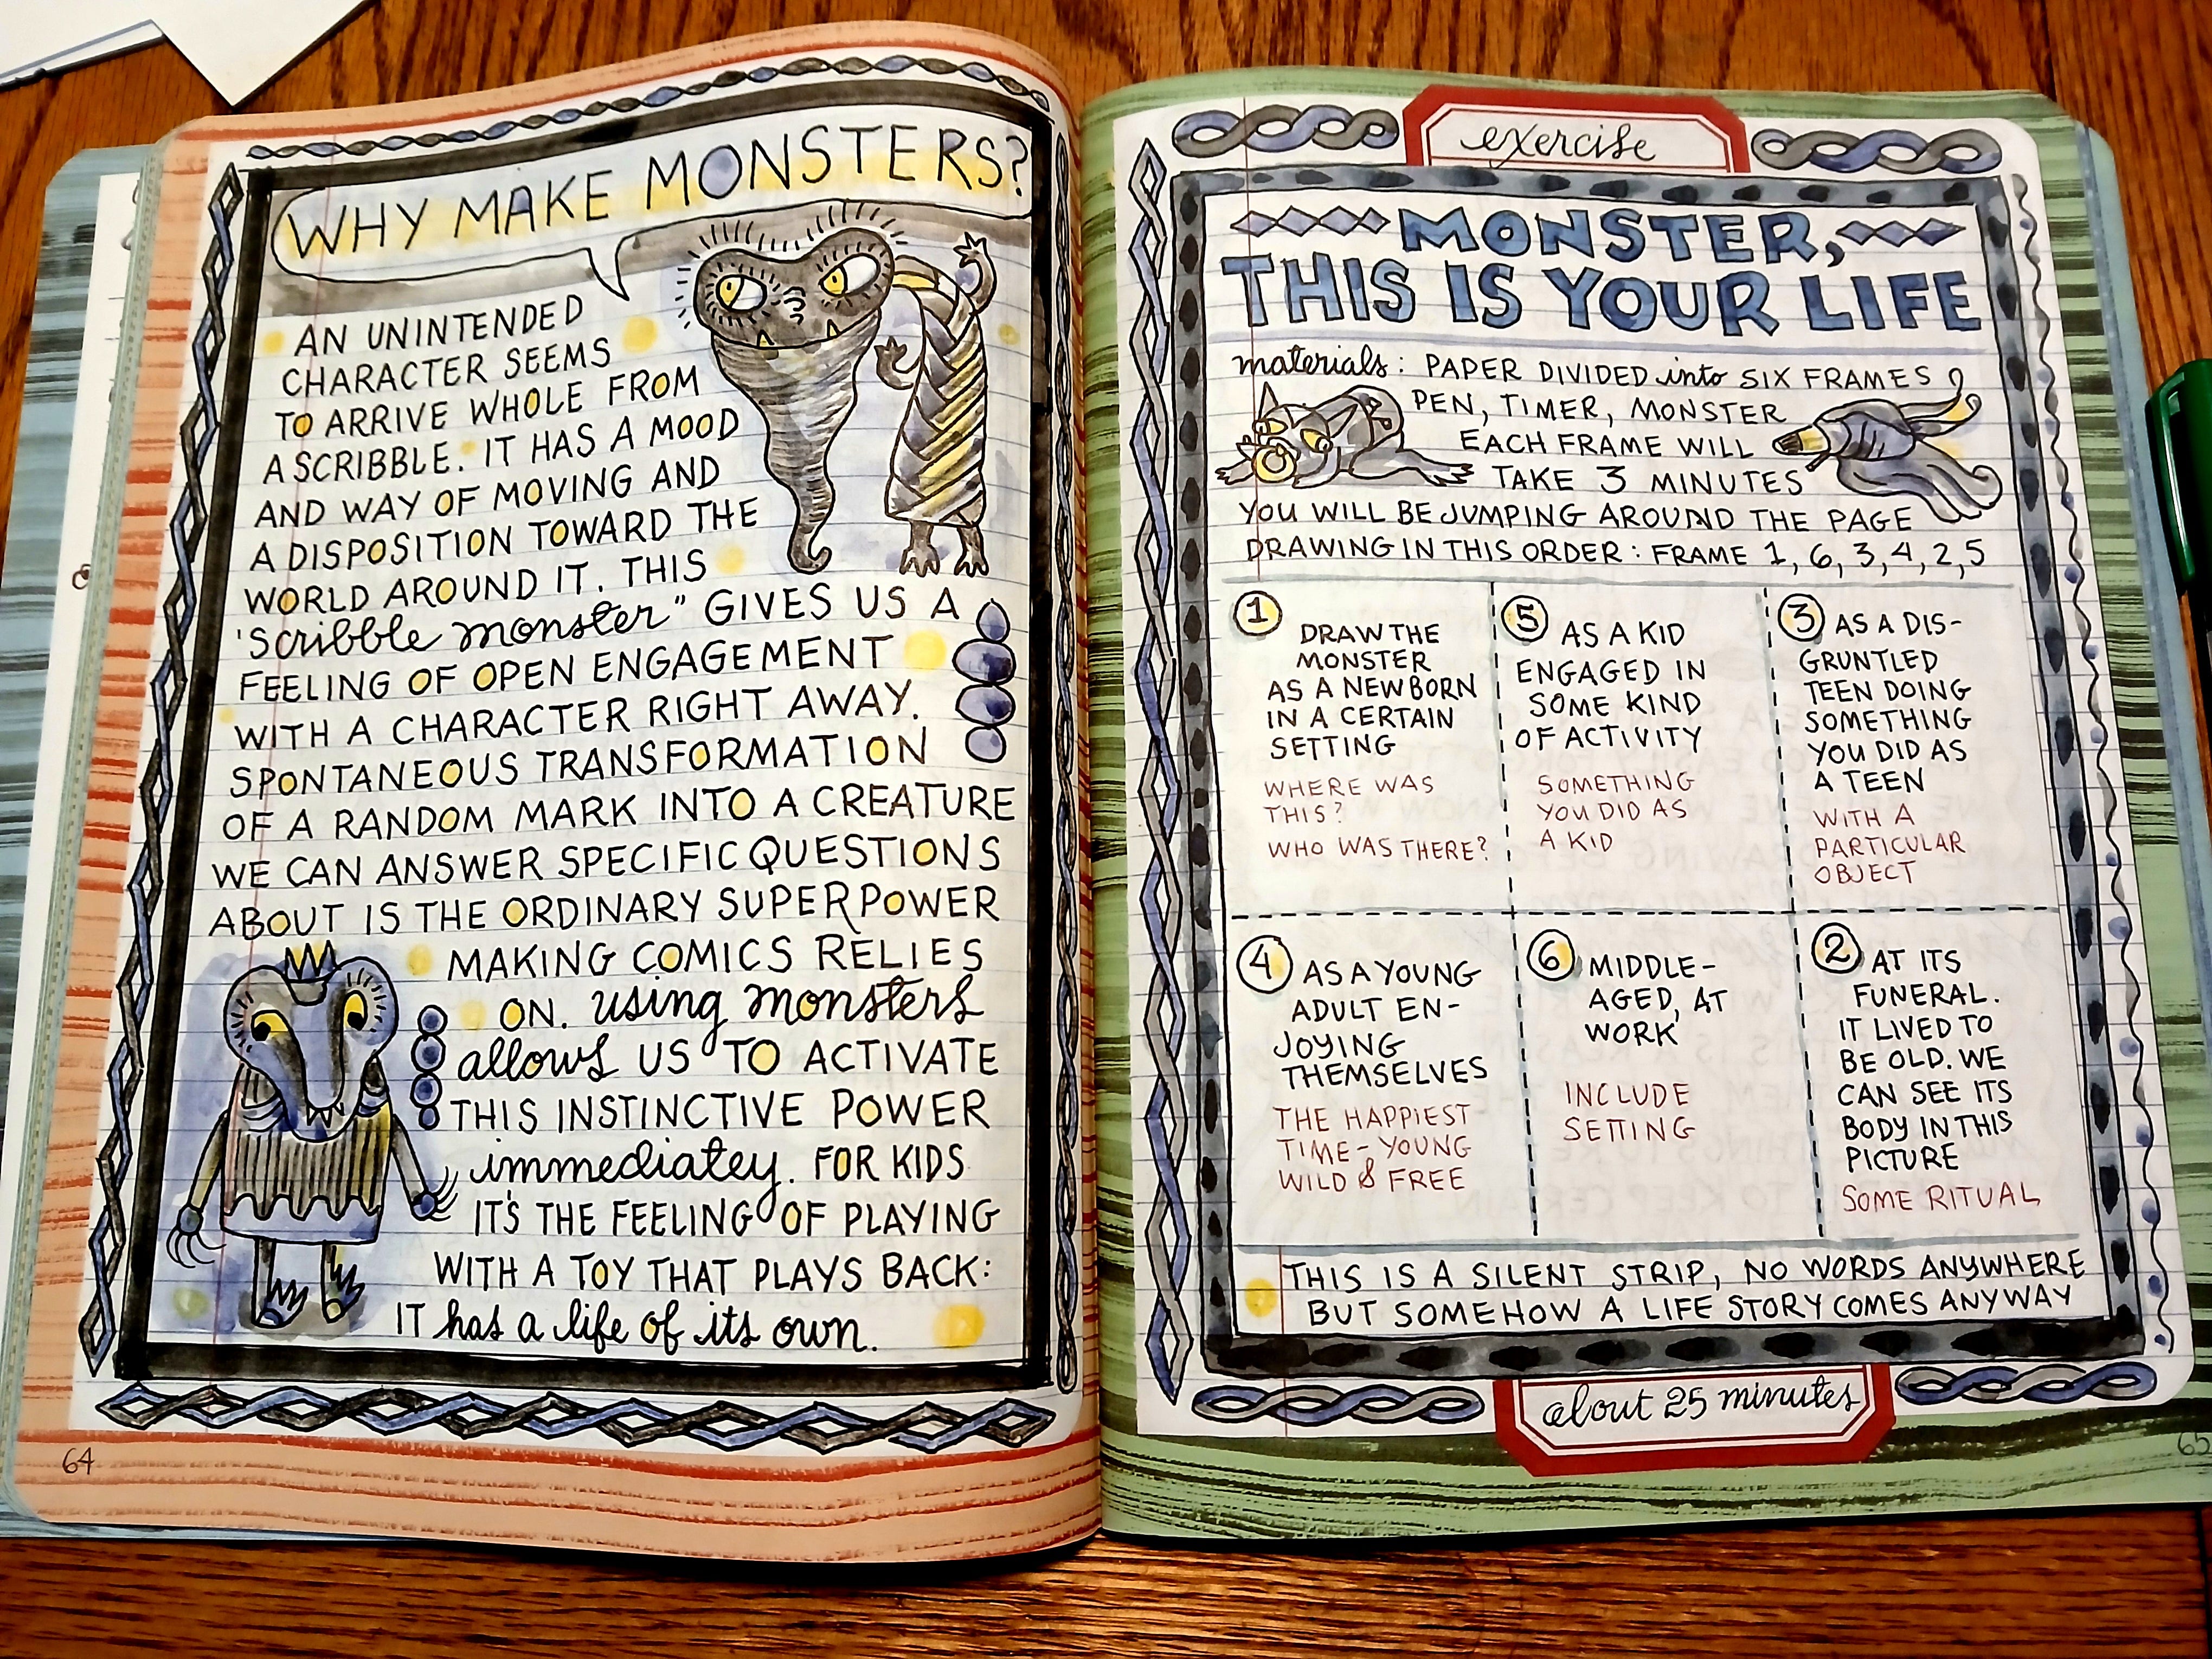 WHY MAKE MONSTERS?
AN UNINTENDED
CHARACTER SEEMS
TO ARRIVE WHOLE FROM
A SCRIBBLE. IT HAS A MOOD
AND WAY OF MOVING AND
A DISPOSITION TOWARD THE
WORLD AROUND IT. THIS
'scribble monster" GIVES US A
FEELING OF OPEN ENGAGEMENT
WITH A CHARACTER RIGHT AWAY.
SPONTANEOUS TRANSFORMATION
OF A RANDOM MARK INTO A CREATURE
WE CAN ANSWER SPECIFIC QUESTIONS
ABOUT IS THE ORDINARY SUPERPOWER
MAKING COMICS RELIES
ON. using monsters
allows US TO ACTIVATE
THIS INSTINCTIVE POWER
immediatey. FOR KIDS
IT'S THE FEELING OF PLAYING
WITH A TOY THAT PLAYS BACK:
IT has a life of its own.
64
exercise
MONSTER,
THIS IS YOUR LIFE
materials: PAPER DIVIDED into SIX FRAMES
PEN, TIMER, MONSTER
EACH FRAME WILL
TAKE 3 MINUTES
YOU WILL BE JUMPING AROUND THE PAGE
DRAWING IN THIS ORDER: FRAME 1, 6, 3, 4, 2, 5
1 DRAW THE
MONSTER
AS A NEWBORN
IN A CERTAIN
SETTING
WHERE WAS
THIS?
WHO WAS THERE?
5 AS A KID
ENGAGED IN
SOME KIND
OF ACTIVITY
SOMETHING
YOU DID AS
A KID
3 AS A DIS-
GRUNTLED
TEEN DOING
SOMETHING
YOU DID AS
A TEEN
WITH A
PARTICULAR
OBJECT
4 AS A YOUNG
ADULT EN-
JOYING
THEMSELVES
THE HAPPIEST
TIME - YOUNG
WILD & FREE
6 MIDDLE-
AGED, AT
WORK
INCLUDE
SETTING
2 AT ITS
FUNERAL.
IT LIVED TO
BE OLD. WE
CAN SEE ITS
BODY IN THIS
PICTURE
SOME RITUAL
THIS IS A SILENT STRIP, NO WORDS ANYWHERE
BUT SOMEHOW A LIFE STORY COMES ANYWAY
about 25 minutes
65